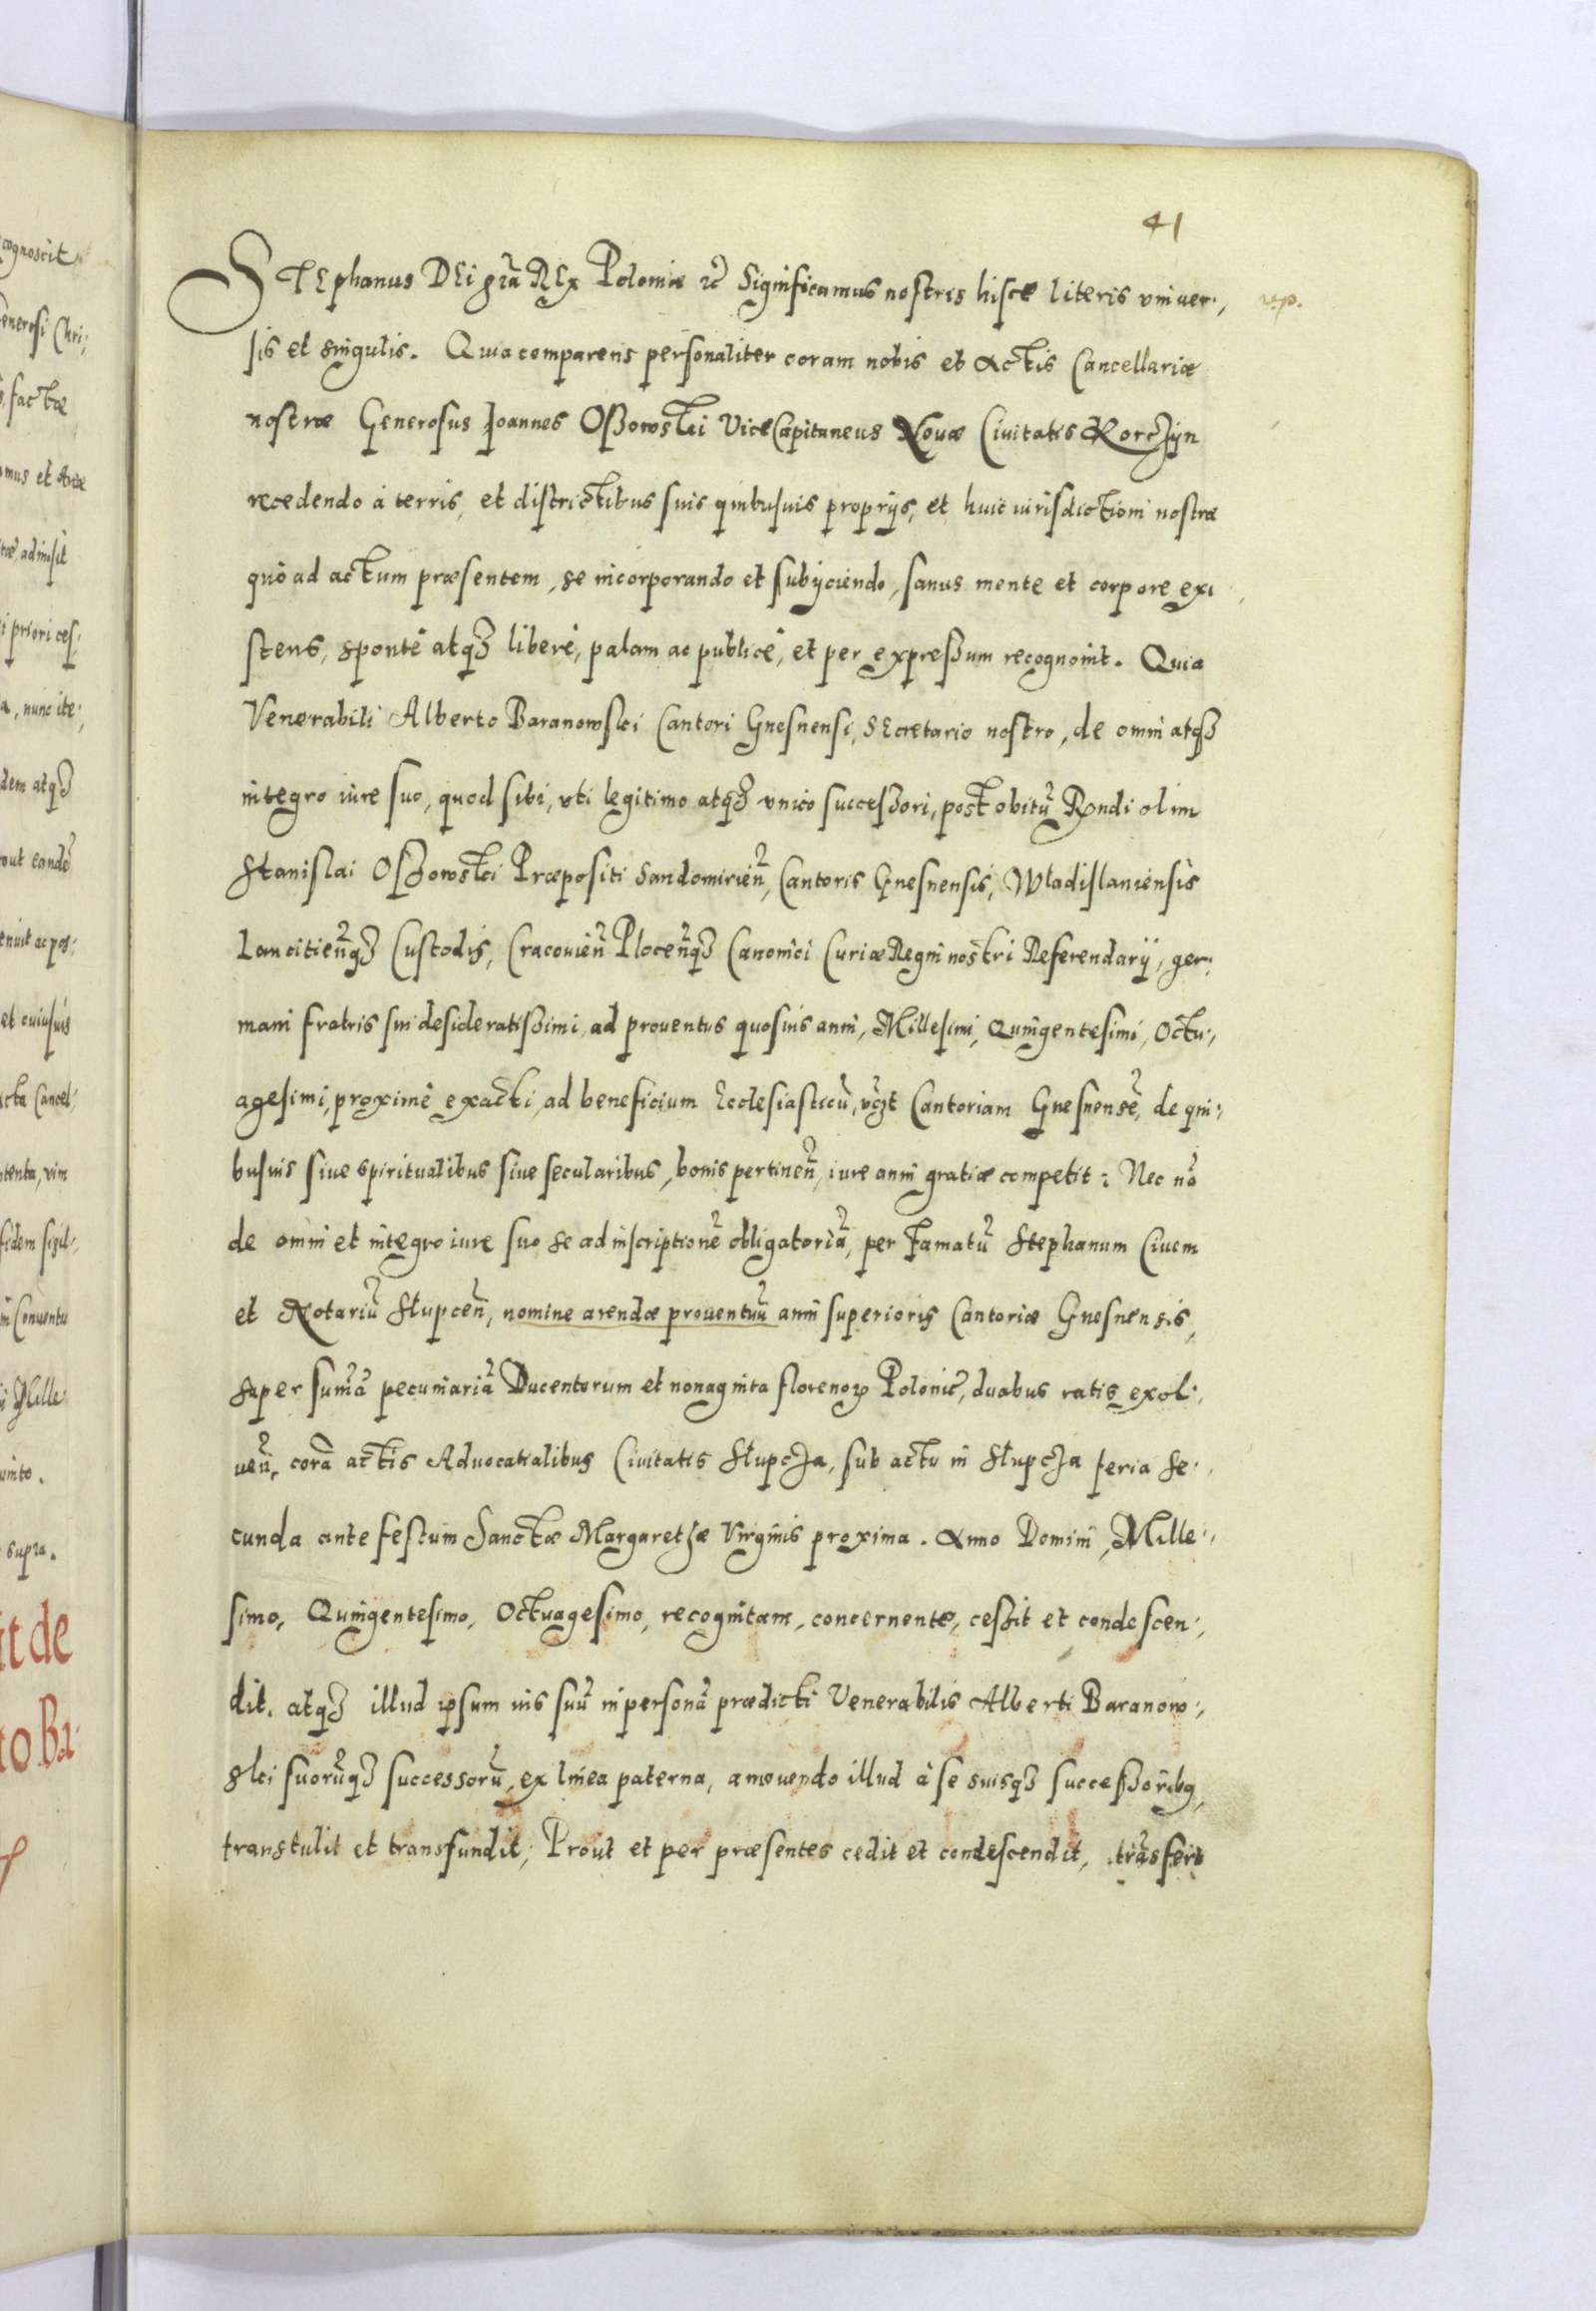 41
STEphanus DEi grã REx Poloniæ ꝛc̃ Significamus nostris hisce literis vniuer:,
sis et singulis. Quia comparens personaliter coram nobis et Actis Cancellariæ
nostræ Generosus Joannes Oßowski ViceCapitaneus Nouæ Ciuitatis Korczÿn
recedendo à terris, et districtibus suis quibusuis proprijs, et huic iurisdictioni nostræ
quò ad actum præsentem, se incorporando et subijciendo, sanus mente et corpore exi,
stens, spontè atqꝫ liberè, palam ac publicè, et per expreßum recognouit. Quia
Venerabili Alberto Baranowski Cantori Gnesnensi, SEcretario nostro, de omni atqꝫ
integro iure suo, quod sibi, vti legitimo atqꝫ vnico succeßori, post obitũ Rẽndi olim
Stanislai Oßowski Præpositi Sandomirieñ, Cantoris Gnesnensis, Wladislauiensis
Lancitieñqꝫ Custodis, Cracouieñ Ploceñqꝫ Canonici Curiæ Regni nostri Referendarij, ger:
mani fratris sui desideratißimi, ad prouentus quosuis anni, Millesimi, Quingentesimi, Octu:,
agesimi, proximè exacti, ad beneficium Ecclesiasticũ, vꝫt Cantoriam Gnesnensẽ, de qui:,
busuis siue spiritualibus siue secularibus, bonis pertineñ, iure anni gratiæ competit: Nec nõ
de omni et integro iure suo se ad inscriptionẽ obligatoriã, per Famatũ Stephanum Ciuem
et Notariũ Słupceñ, nomine arendæ prouentuũ anni superioris Cantoriæ Gnesnensis,
super sum̃ã pecuniariã Ducentorum et nonaginta florenoꝝ Polonic̃, duabus ratis exol:,
ueñ, corã actis Aduocatialibus Ciuitatis Słupcza, sub actu in Słupcza feria se:,
cunda ante festum Sanctæ Margarethæ Virginis proxima. Anno Domini, Mille:,
simo, Quingentesimo, Octuagesimo, recognitam, concernente, ceßit et condescen:,
dit, atqꝫ illud ipsum ius suũ in personã prædicti Venerabilis Alberti Baranow:,
ski suorũqꝫ successorũ, ex linea paterna, amouendo illud à se suisqꝫ succeßoribꝰ,
transtulit et transfundit, Prout et per præsentes cedit et condescendit, trãsfert